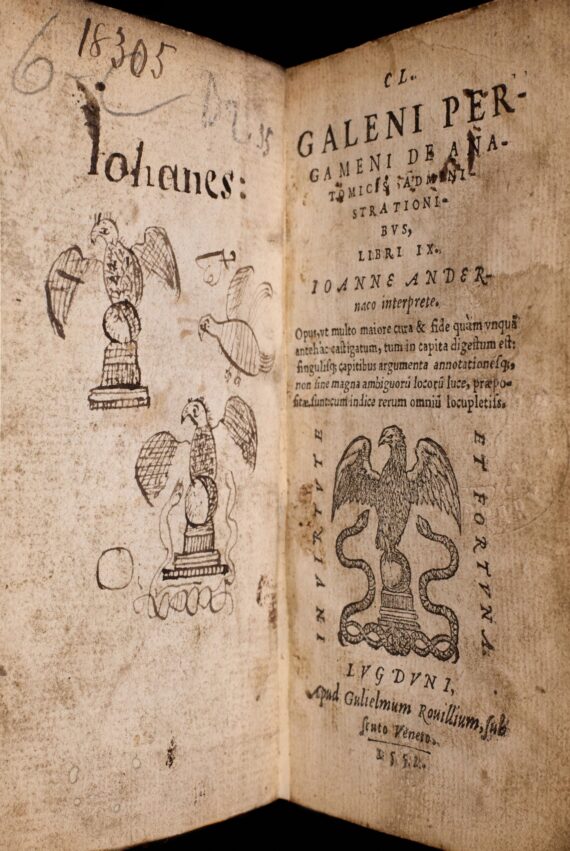 18305
6
Iohanes:
CL.
GALENI PER-
GAMENI DE ANA-
TOMICIS ADMINI-
STRATIONI-
BVS,
LIBRI IX.
IOANNE ANDER-
naco interprete.
Opus, vt multo maiore cura & fide quàm vnquā
antehàc caſtigatum, tum in capita digeſtum eſt:
ſingulisq; capitibus argumenta annotationesq;,
non ſine magna ambiguorū locorū luce, præpo-
ſitæ ſunt: cum indice rerum omniū locupletiſs.
IN VIRTVTE
ET FORTVNA.
LVGDVNI,
Apud Gulielmum Rouillium, ſub
ſcuto Veneto.